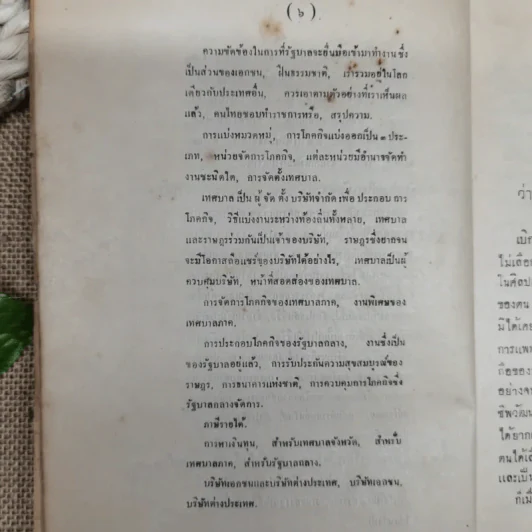 ( ๖ )
ความขัดข้องในการที่รัฐบาลจะยื่นมือเข้ามาทำงาน ซึ่ง
เป็นส่วนของเอกชน, ฝืนธรรมชาติ, เรารวมอยู่ในโลก
เดียวกับประเทศอื่น, ควรเอาตามตัวอย่างที่เราเห็นผล
แล้ว, คนไทยชอบทำราชการหรือ, สรุปความ.
การแบ่งหมวดหมู่, การโภคกิจแบ่งออกเป็น ๓ ประ-
เภท, หน่วยจัดการโภคกิจ, แต่ละหน่วยมีอำนาจจัดทำ
งานชะนิดใด, การจัดตั้งเทศบาล.
เทศบาล เป็น ผู้ จัด ตั้ง บริษัทจำกัด เพื่อ ประกอบ การ
โภคกิจ, วิธีแบ่งงานระหว่างท้องถิ่นทั้งหลาย, เทศบาล
และราษฎรร่วมกันเป็นเจ้าของบริษัท, ราษฎรซึ่งยากจน
จะมีโอกาสถือแชร์ของบริษัทได้อย่างไร, เทศบาลเป็นผู้
ควบคุมบริษัท, หน้าที่สอดส่องของเทศบาล.
การจัดการโภคกิจของเทศบาลภาค, งานพิเศษของ
เทศบาลภาค.
การประกอบโภคกิจของรัฐบาลกลาง, งานซึ่งเป็น
ของรัฐบาลอยู่แล้ว, การรับประกันความสุขสมบูรณ์ของ
ราษฎร, การธนาคารแห่งชาติ, การควบคุมการโภคกิจซึ่ง
รัฐบาลกลางจัดการ.
ภาษีรายได้.
การหาเงินทุน, สำหรับเทศบาลจังหวัด, สำหรับ
เทศบาลภาค, สำหรับรัฐบาลกลาง.
บริษัทเอกชนและบริษัทต่างประเทศ, บริษัทเอกชน,
บริษัทต่างประเทศ.
ว่า
เบิก
ไม่เลือ
ในศิลป
ของตน
มิได้เคย
การแพท
ถือของ
อย่างจ
ชีพวัฒน
ได้ยาก
ตนได้เ
และเป็น
ก็เมื่